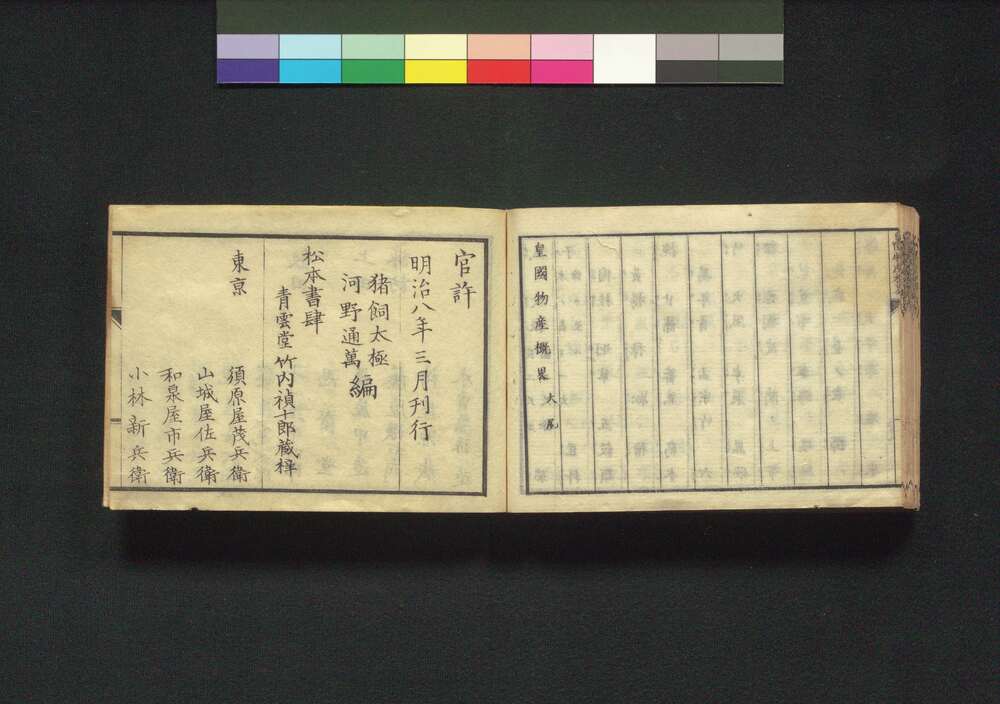 皇國物産概畧 大尾
官許
明治八年三月刊行
猪飼太極
河野通萬
編
松本書肆
青雲堂竹内禎十郎藏梓
東京
須原屋茂兵衛
山城屋佐兵衛
和泉屋市兵衛
小林新兵衛